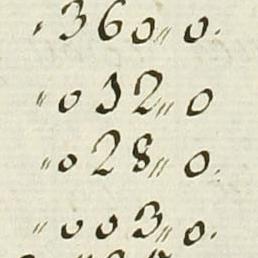 "360,,0.
"032,,0
"028,,0.
"003,,0.